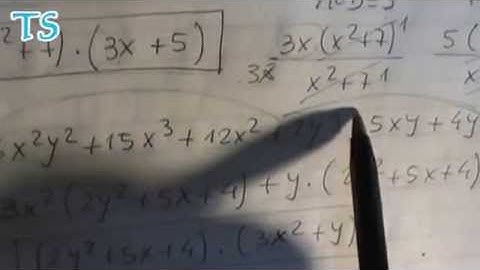 TS
² + 7) · (3x + 5)
3x (x² + 7)¹ 5 (
3x x² + 7¹ x
x²y² + 15x³ + 12x² + 5xy + 4y
3x² (2y² + 5x + 4) + y · ( ² + 5x + 4)
(2y² + 5x + 4) · (3x² + y)